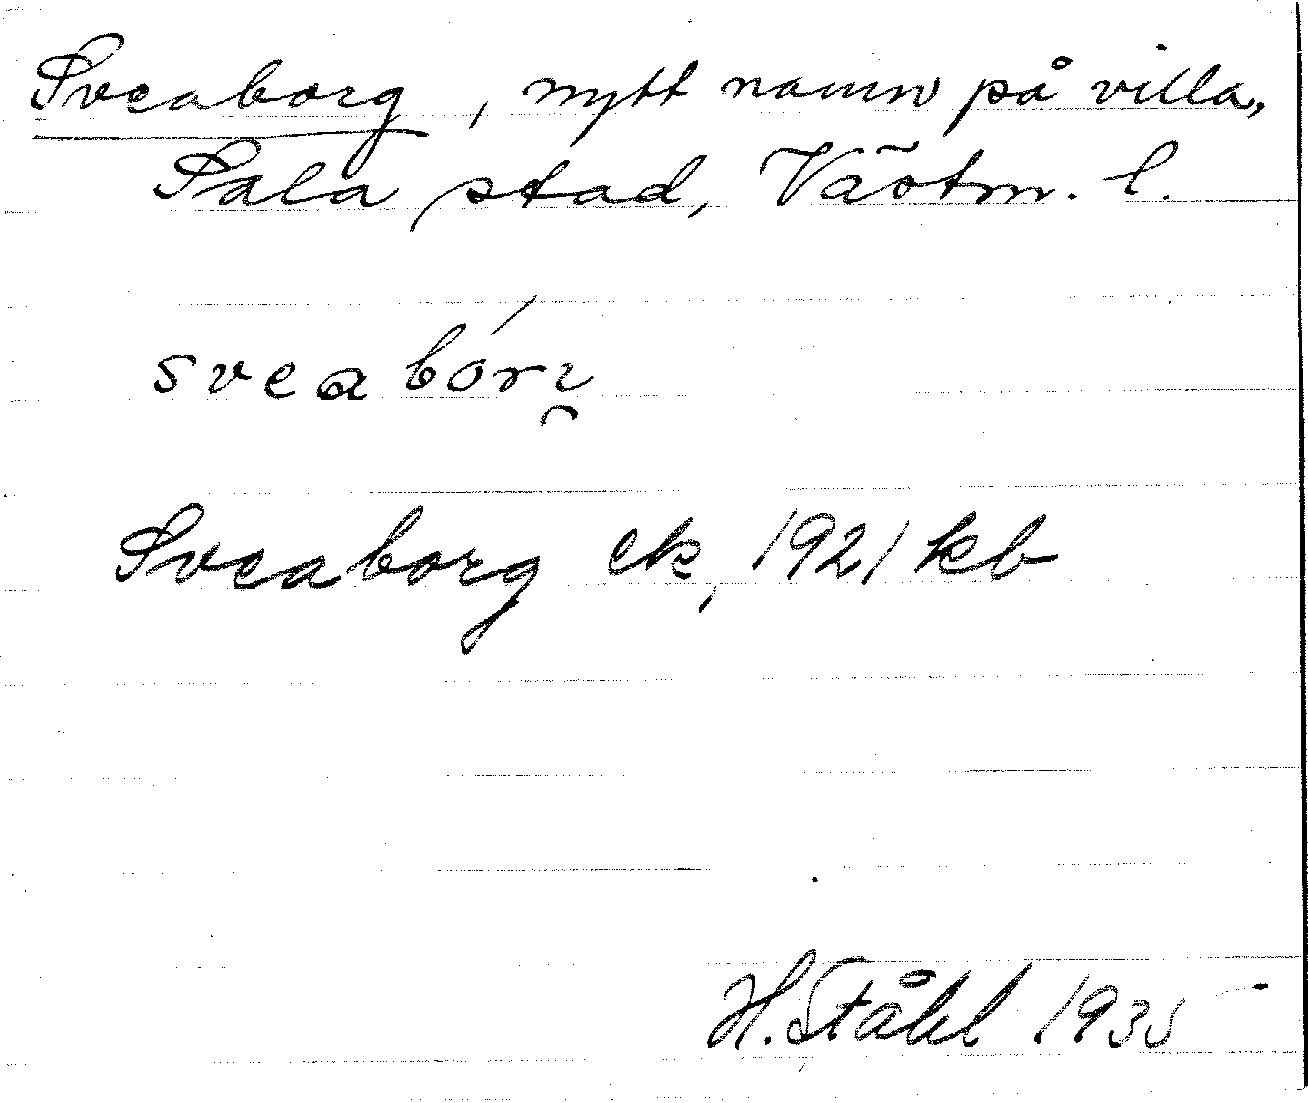 Sveaborg, nytt namn på villa,
Sala stad, Västm. l.
sveabórı̯
Sveaborg ek, 1921 kb
H. Ståhl 1935